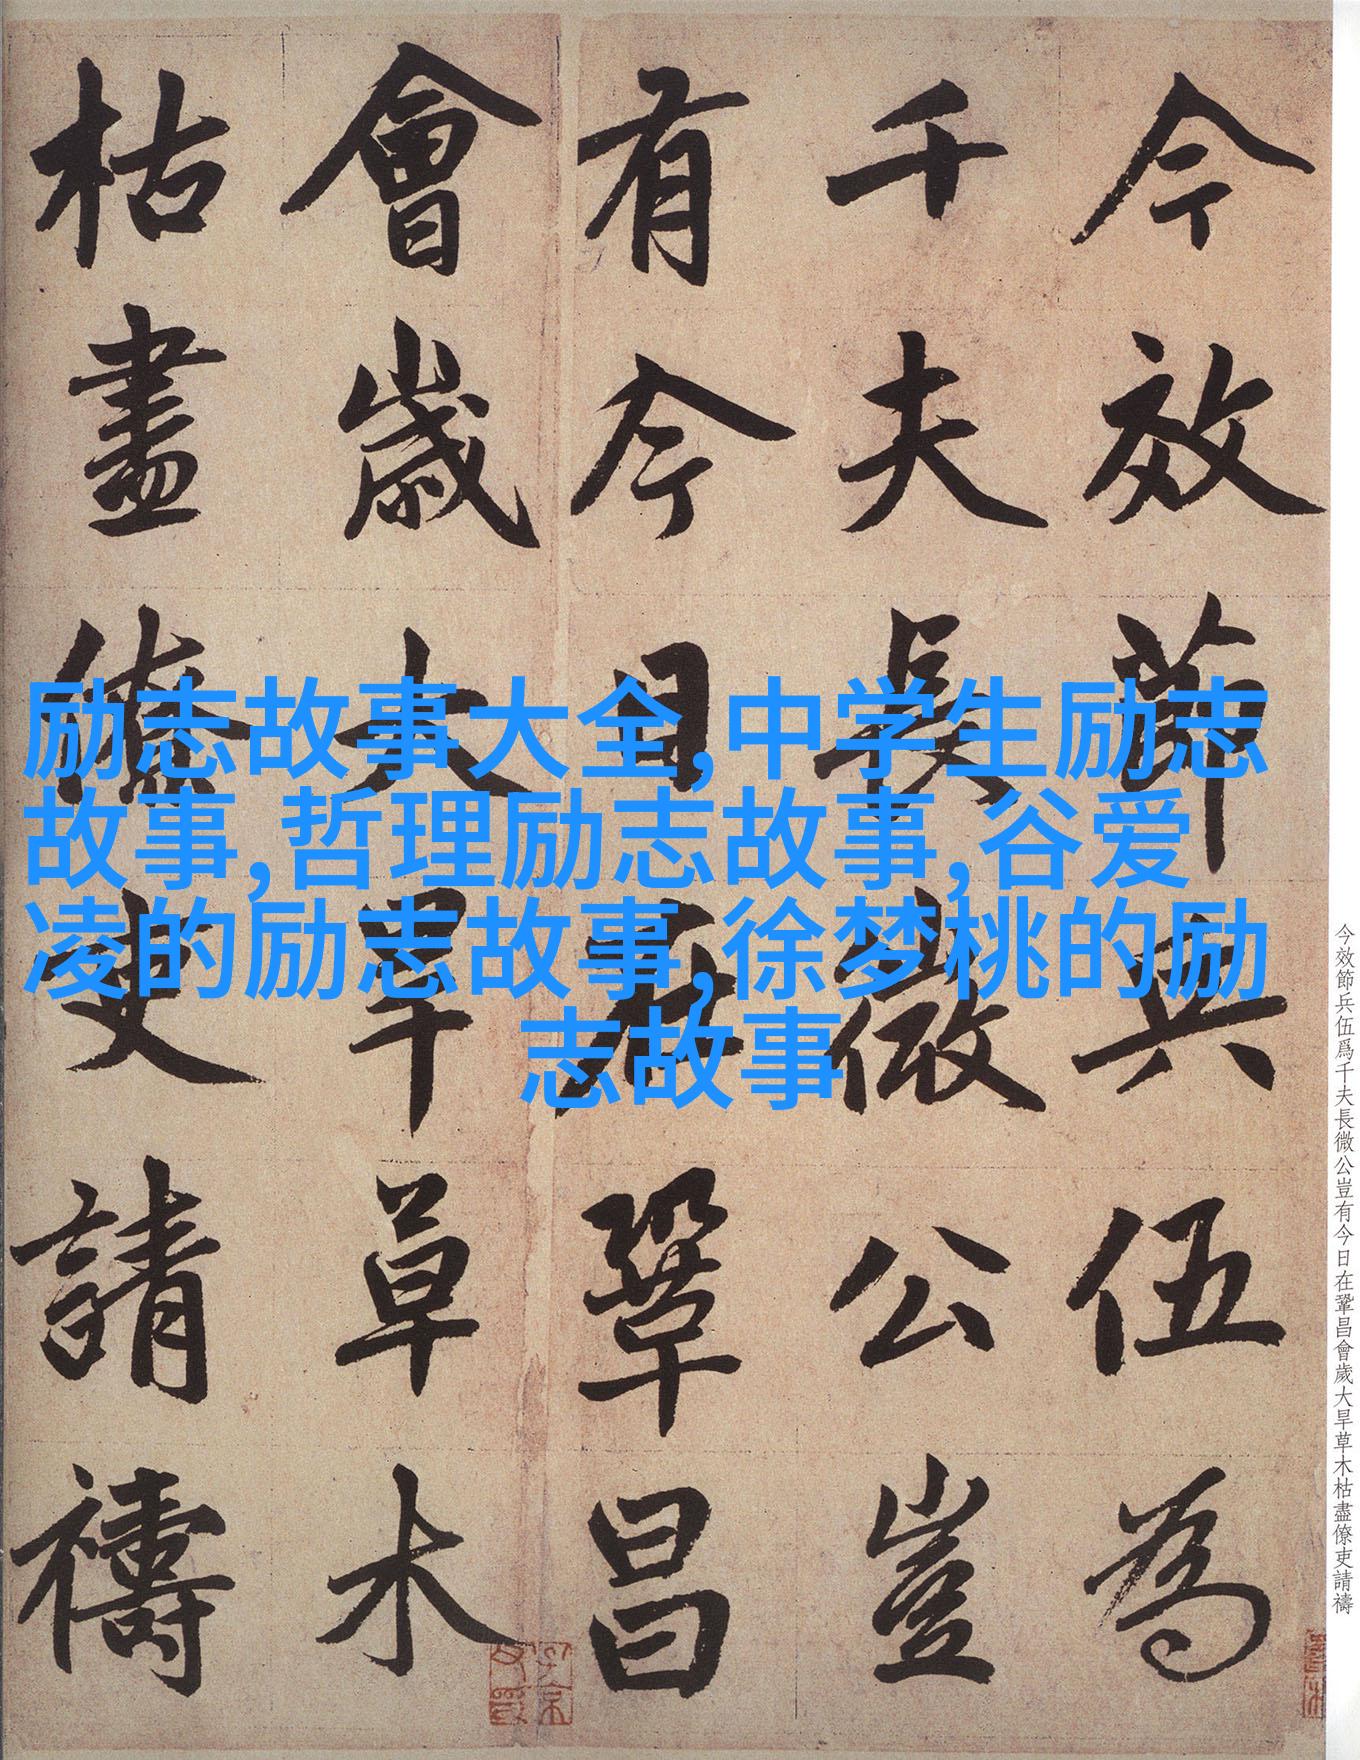 今效節兵伍為
千夫長微公豈
有今日在鞏昌
會歲大旱草木
枯盡僚吏請禱
励志故事大全,中学生励志
故事,哲理励志故事,谷爱
凌的励志故事,徐梦桃的励
志故事
今效節兵伍爲千夫長微公豈有今日在鞏昌會歲大旱草木枯盡僚吏請禱